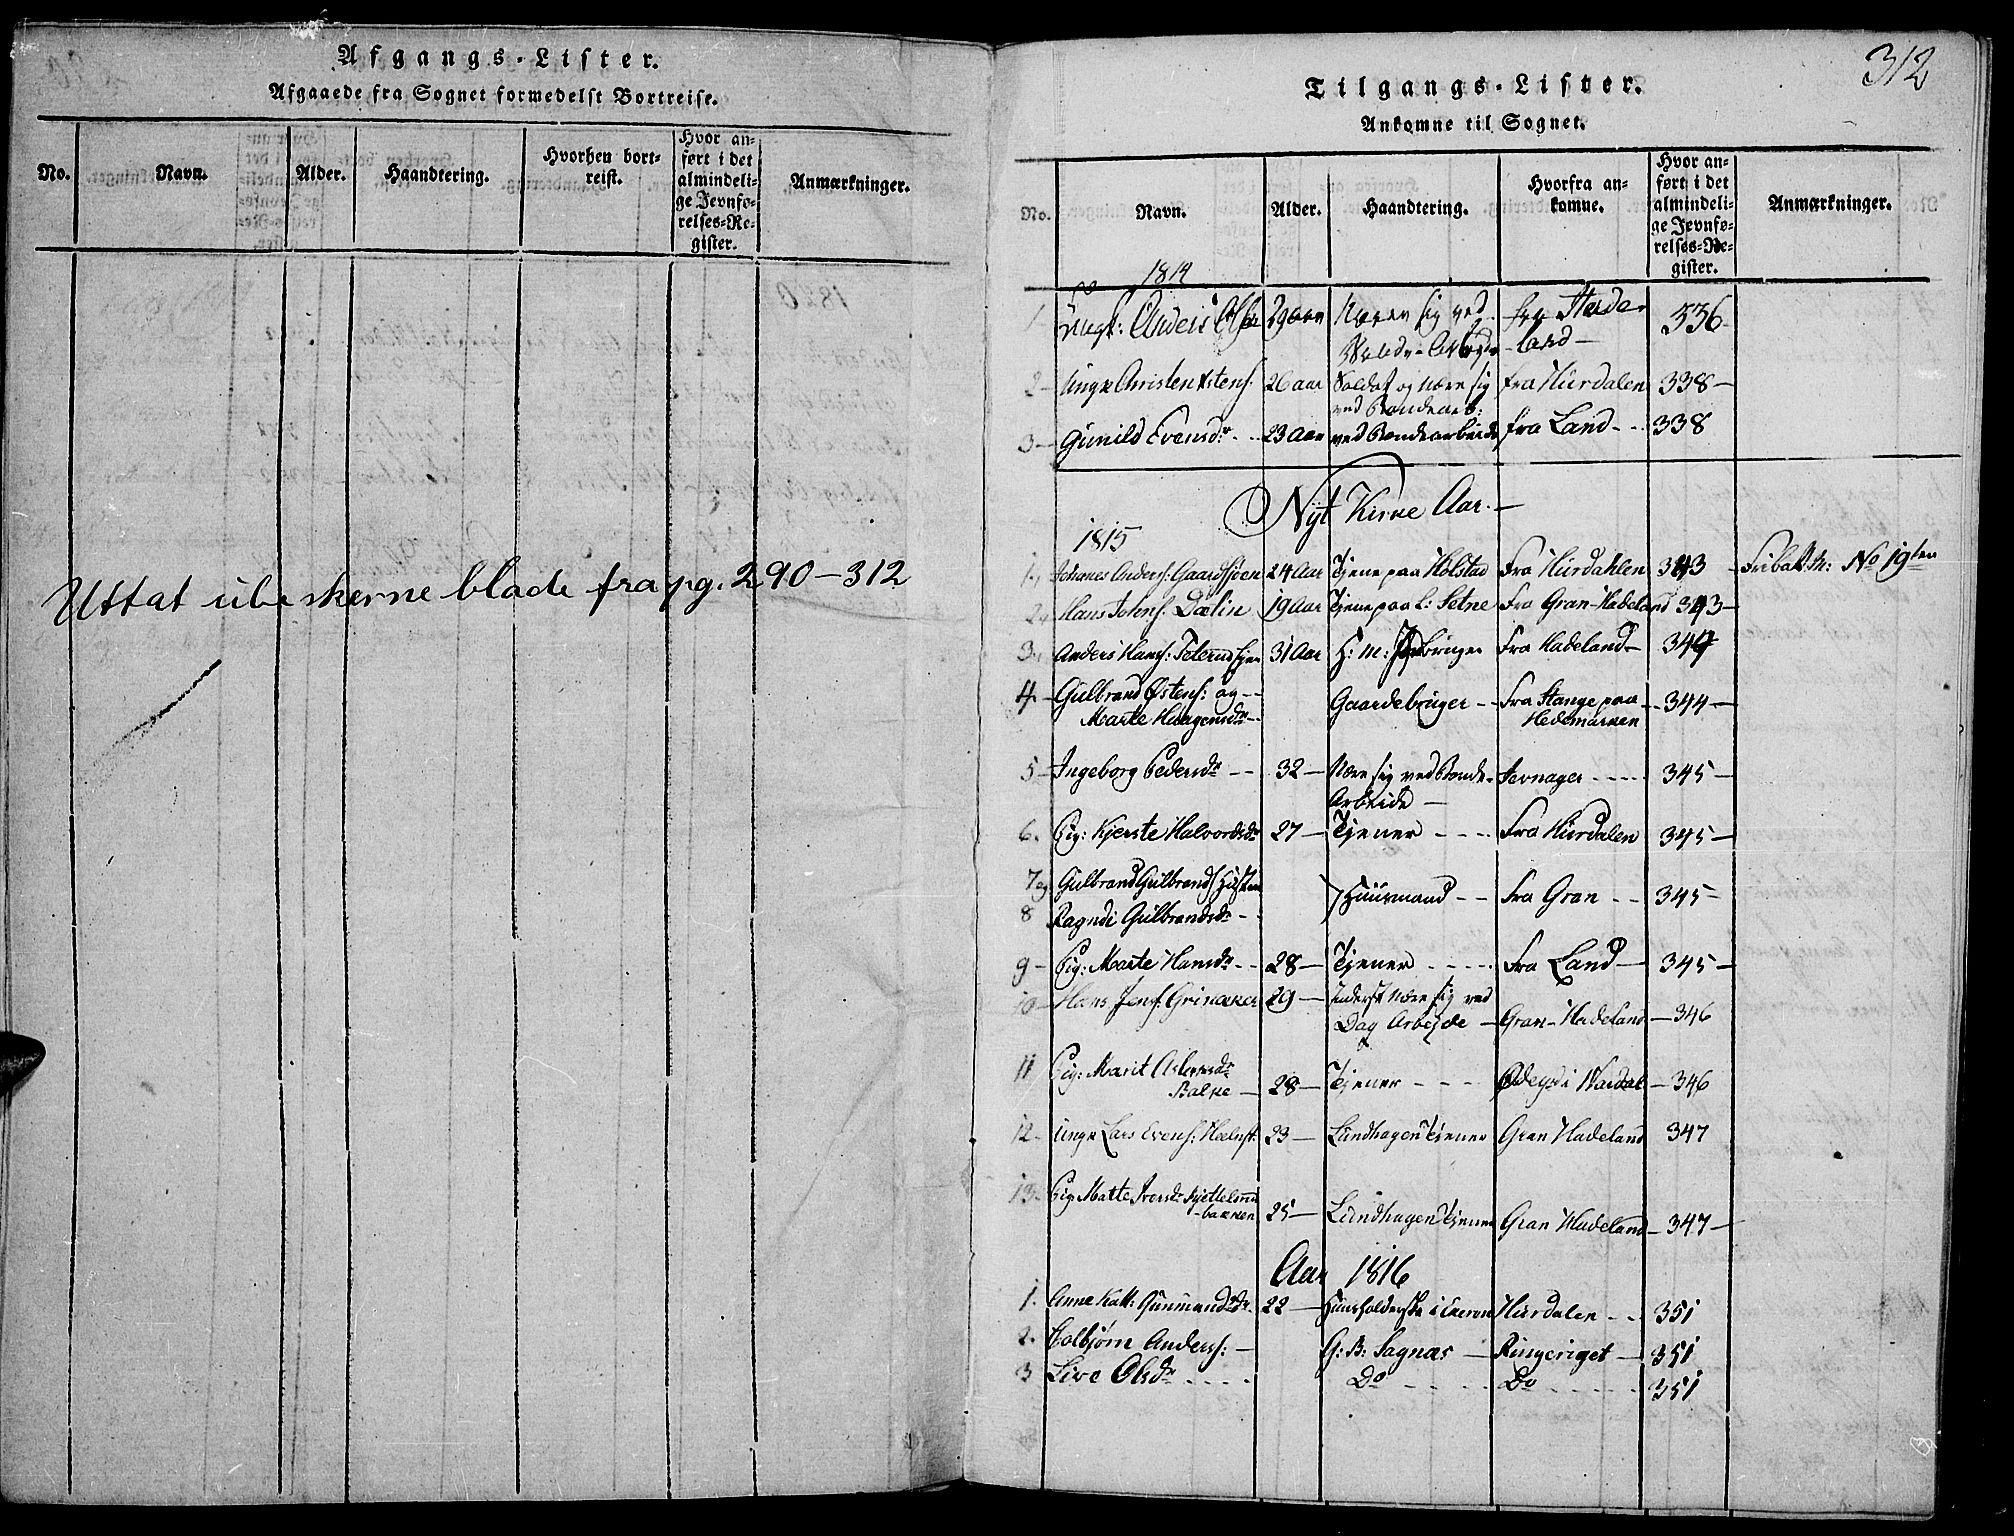 Afgangs-Lister.
Afgaaede fra Sognet formedelst Bortreise.
No. Navn. Alder. Haandtering. Hvorhen bortreist. Hvor anført i det almindelige Jevnførelses-Register. Anmærkninger.
Uttat ubeskrevne blade fra pg. 290-312
312
Tilgangs-Lister.
Ankomne til Sognet.
No. Navn. Alder. Haandtering. Hvorfra ankomne. Hvor anført i det almindelige Jevnførelses-Register. Anmærkninger.
1814
1 Anders 29 Aar Nærer sig ved fra Hadeland 336
2 Ungk Christen Østens: 26 aar Soldat og nære sig ved Bondearb: fra Hurdalen 338
3 Gunild Evensdr 23 Aar ved Bondearbeide fra Land 338
Nyt Kirke Aar.
1815
1 Johanes Anders: Gaardsøen 24 Aar Tjene paa Holstad Fra Hurdahlen 343 No 19ten
2 Hans Johns: Dælin 19 Aar Tjene paa L: Setne Fra Gran Hadeland 343
3 Anders Hans: 31 Aar H: M: Fra Hadeland 344
4 Gulbrand Østens: og Marte Haagensdr Gaardebruger Fra Stange paa Hedemarken 344
5 Ingeborg Pedersdr 32 Nære sig ved Bonde-Arbeide Jevnager 345
6. Pig: Kjerste Halvordsdr 27 Tjener Fra Hurdalen 345
7 og Gulbrand Gulbrands:
8 Ragndi Gulbrandsdr Huusmand Fra Gran 345
9 Pig: Marte Hansdr 28 Tjener Fra Land 345
10 Hans Jens: Grinaker 29 Inderst nære sig ved Dag Arbejde Gran Hadeland 346
11 Pig: Marit Balke 28 Tjener Ødegrd i Vardal 346
12 Ungk Lars Evens: 23 Lundhagen Tjener Gran Hadeland 347
13 Pig: Matte Iversdr Kjettelsrudbakken 25 Lundhagen Tjener Gran Hadeland 347
Aar 1816
1. Anne Katt: Gunmundsdr 22 Huusholderske i Hurdalen 351
2. Kolbjørn Anders: G: B: Sagnæs Ringeriget 351
3 Live Olsdr Do Do 351